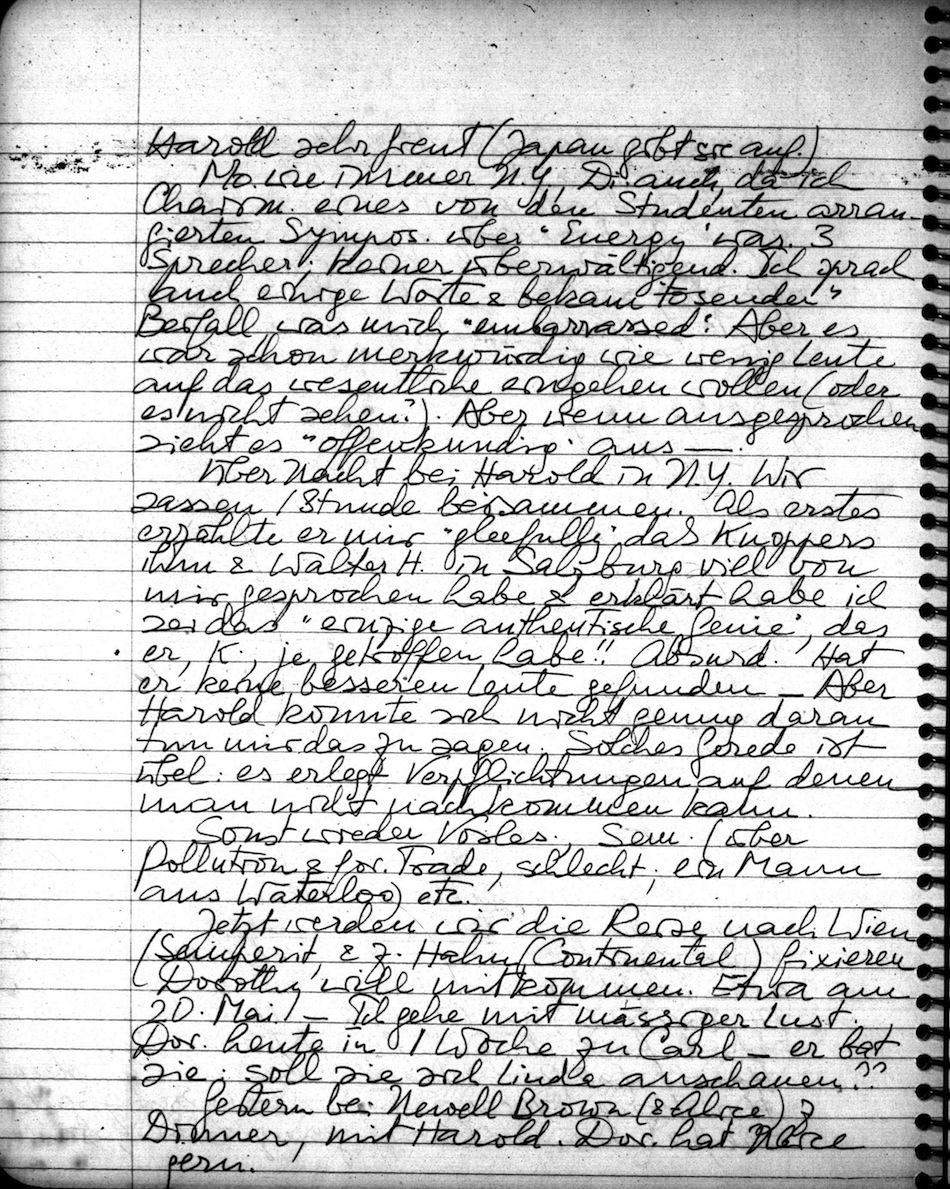 Harold sehr freut (Japan gibt sie auf.)
Mo. wie immer N.Y., Di. auch, da ich
Chairm. eines von den Studenten arran-
gierten Sympos. über "Energy" war. 3
Sprecher; keiner überwältigend. Ich sprach
auch einige Worte & bekam "tosenden"
Beifall was mich "embarrassed". Aber es
war schon merkwürdig wie wenig Leute
auf das wesentliche eingehen wollen (oder
es nicht sehen?). Aber wenn ausgesprochen
sieht es "offenkundig" aus —.
Über Nacht bei Harold in N.Y. Wir
sassen 1 Stunde beisammen. Als erstes
erzählte er mir "gleefully" das Knoppers
ihm & Walter H. in Salzburg viel von
mir gesprochen habe & erklärt habe ich
sei das "einzige authentische Genie", das
er, K., je getroffen habe!! Absurd. Hat
er keine besseren Leute gefunden — Aber
Harold konnte sich nicht genug daran
tun mir das zu sagen. Solches Gerede ist
übel: es erlegt Verpflichtungen auf denen
man nicht nachkommen kann.
Sonst wieder Vieles. Sem. (über
Pollution & for. Trade, schlecht; ein Mann
aus Waterloo) etc.
Jetzt werden wir die Reise nach Wien
(Semperit, & z. Hahn (Continental) fixieren
Dorothy will mitkommen. Etwa am
20. Mai — Ich gehe mit mässiger Lust.
Dor. heute in 1 Woche zu Carl — er bat
sie; soll sie sich Linda anschauen??
Gestern bei Newell Brown (& Alice) z
Dinner, mit Harold. Dor. hat Alice
gern.